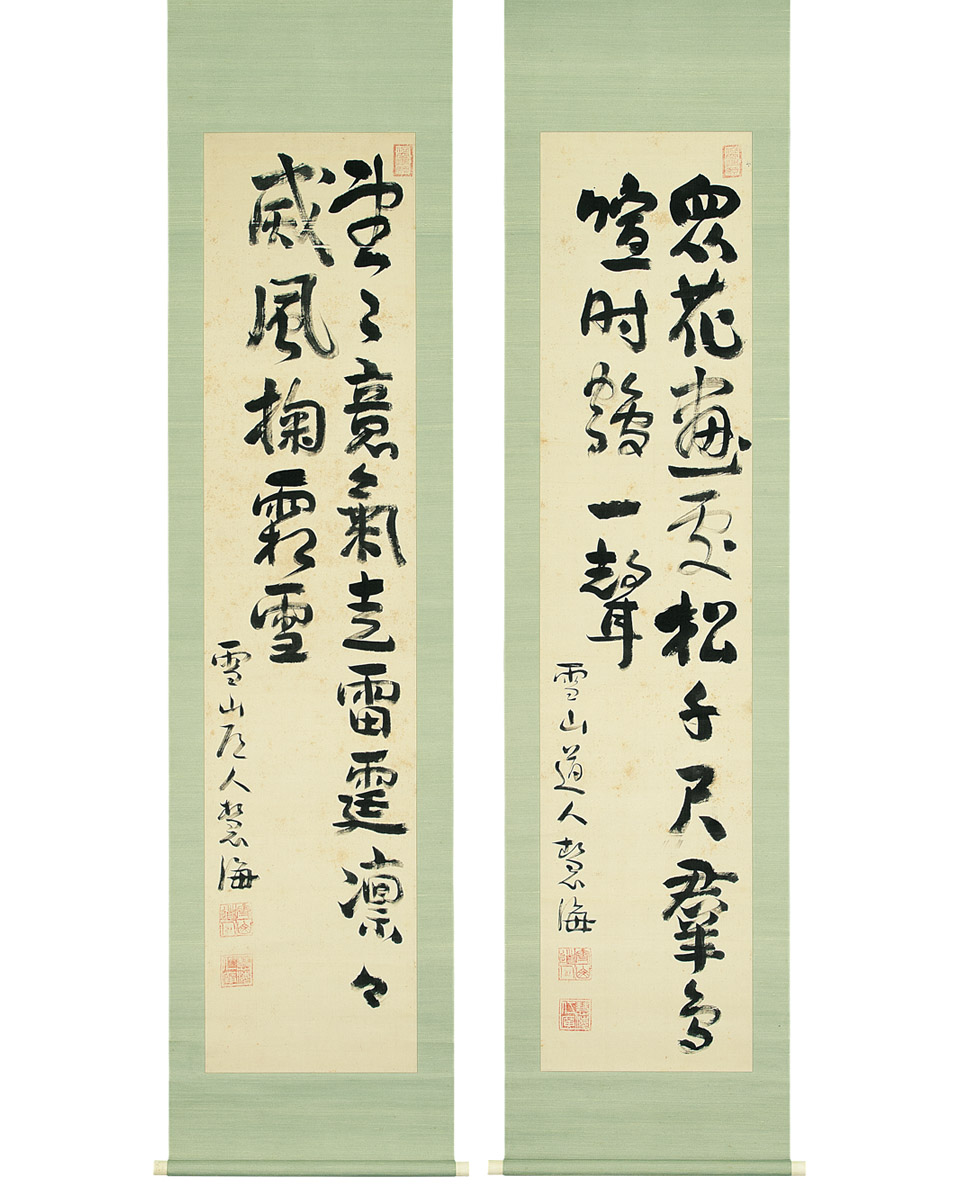 衆花盡處松千尺羣鳥
喧时鶴一聲
雪山道人慧海
堂々意氣走雷霆凛々
威風掬霜雪
雪山道人慧海